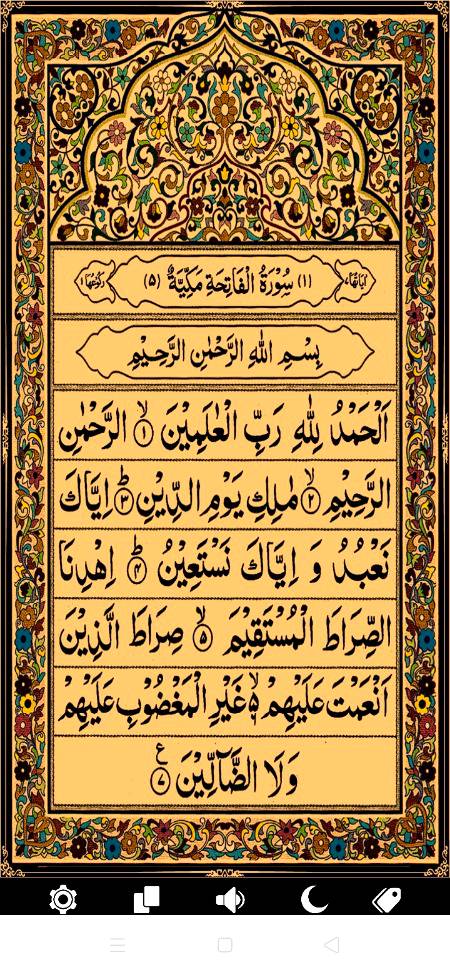 اٰیَاتُهَا٧ (١) سُوْرَةُ الْفَاتِحَةِ مَكِّیَّةٌ (٥) رُكُوْعُهَا١
بِسْمِ اللّٰهِ الرَّحْمٰنِ الرَّحِیْمِ
اَلْحَمْدُ لِلّٰهِ رَبِّ الْعٰلَمِیْنَ ۙ﴿۱﴾ الرَّحْمٰنِ
الرَّحِیْمِ ۙ﴿۲﴾ مٰلِكِ یَوْمِ الدِّیْنِ ؕ﴿۳﴾ اِیَّاكَ
نَعْبُدُ وَ اِیَّاكَ نَسْتَعِیْنُ ؕ﴿۴﴾ اِهْدِنَا
الصِّرَاطَ الْمُسْتَقِیْمَ ۙ﴿۵﴾ صِرَاطَ الَّذِیْنَ
اَنْعَمْتَ عَلَیْهِمْ ۙ۬ۦ غَیْرِ الْمَغْضُوْبِ عَلَیْهِمْ
وَلَا الضَّآلِّیْنَ ﴿۷﴾ ع